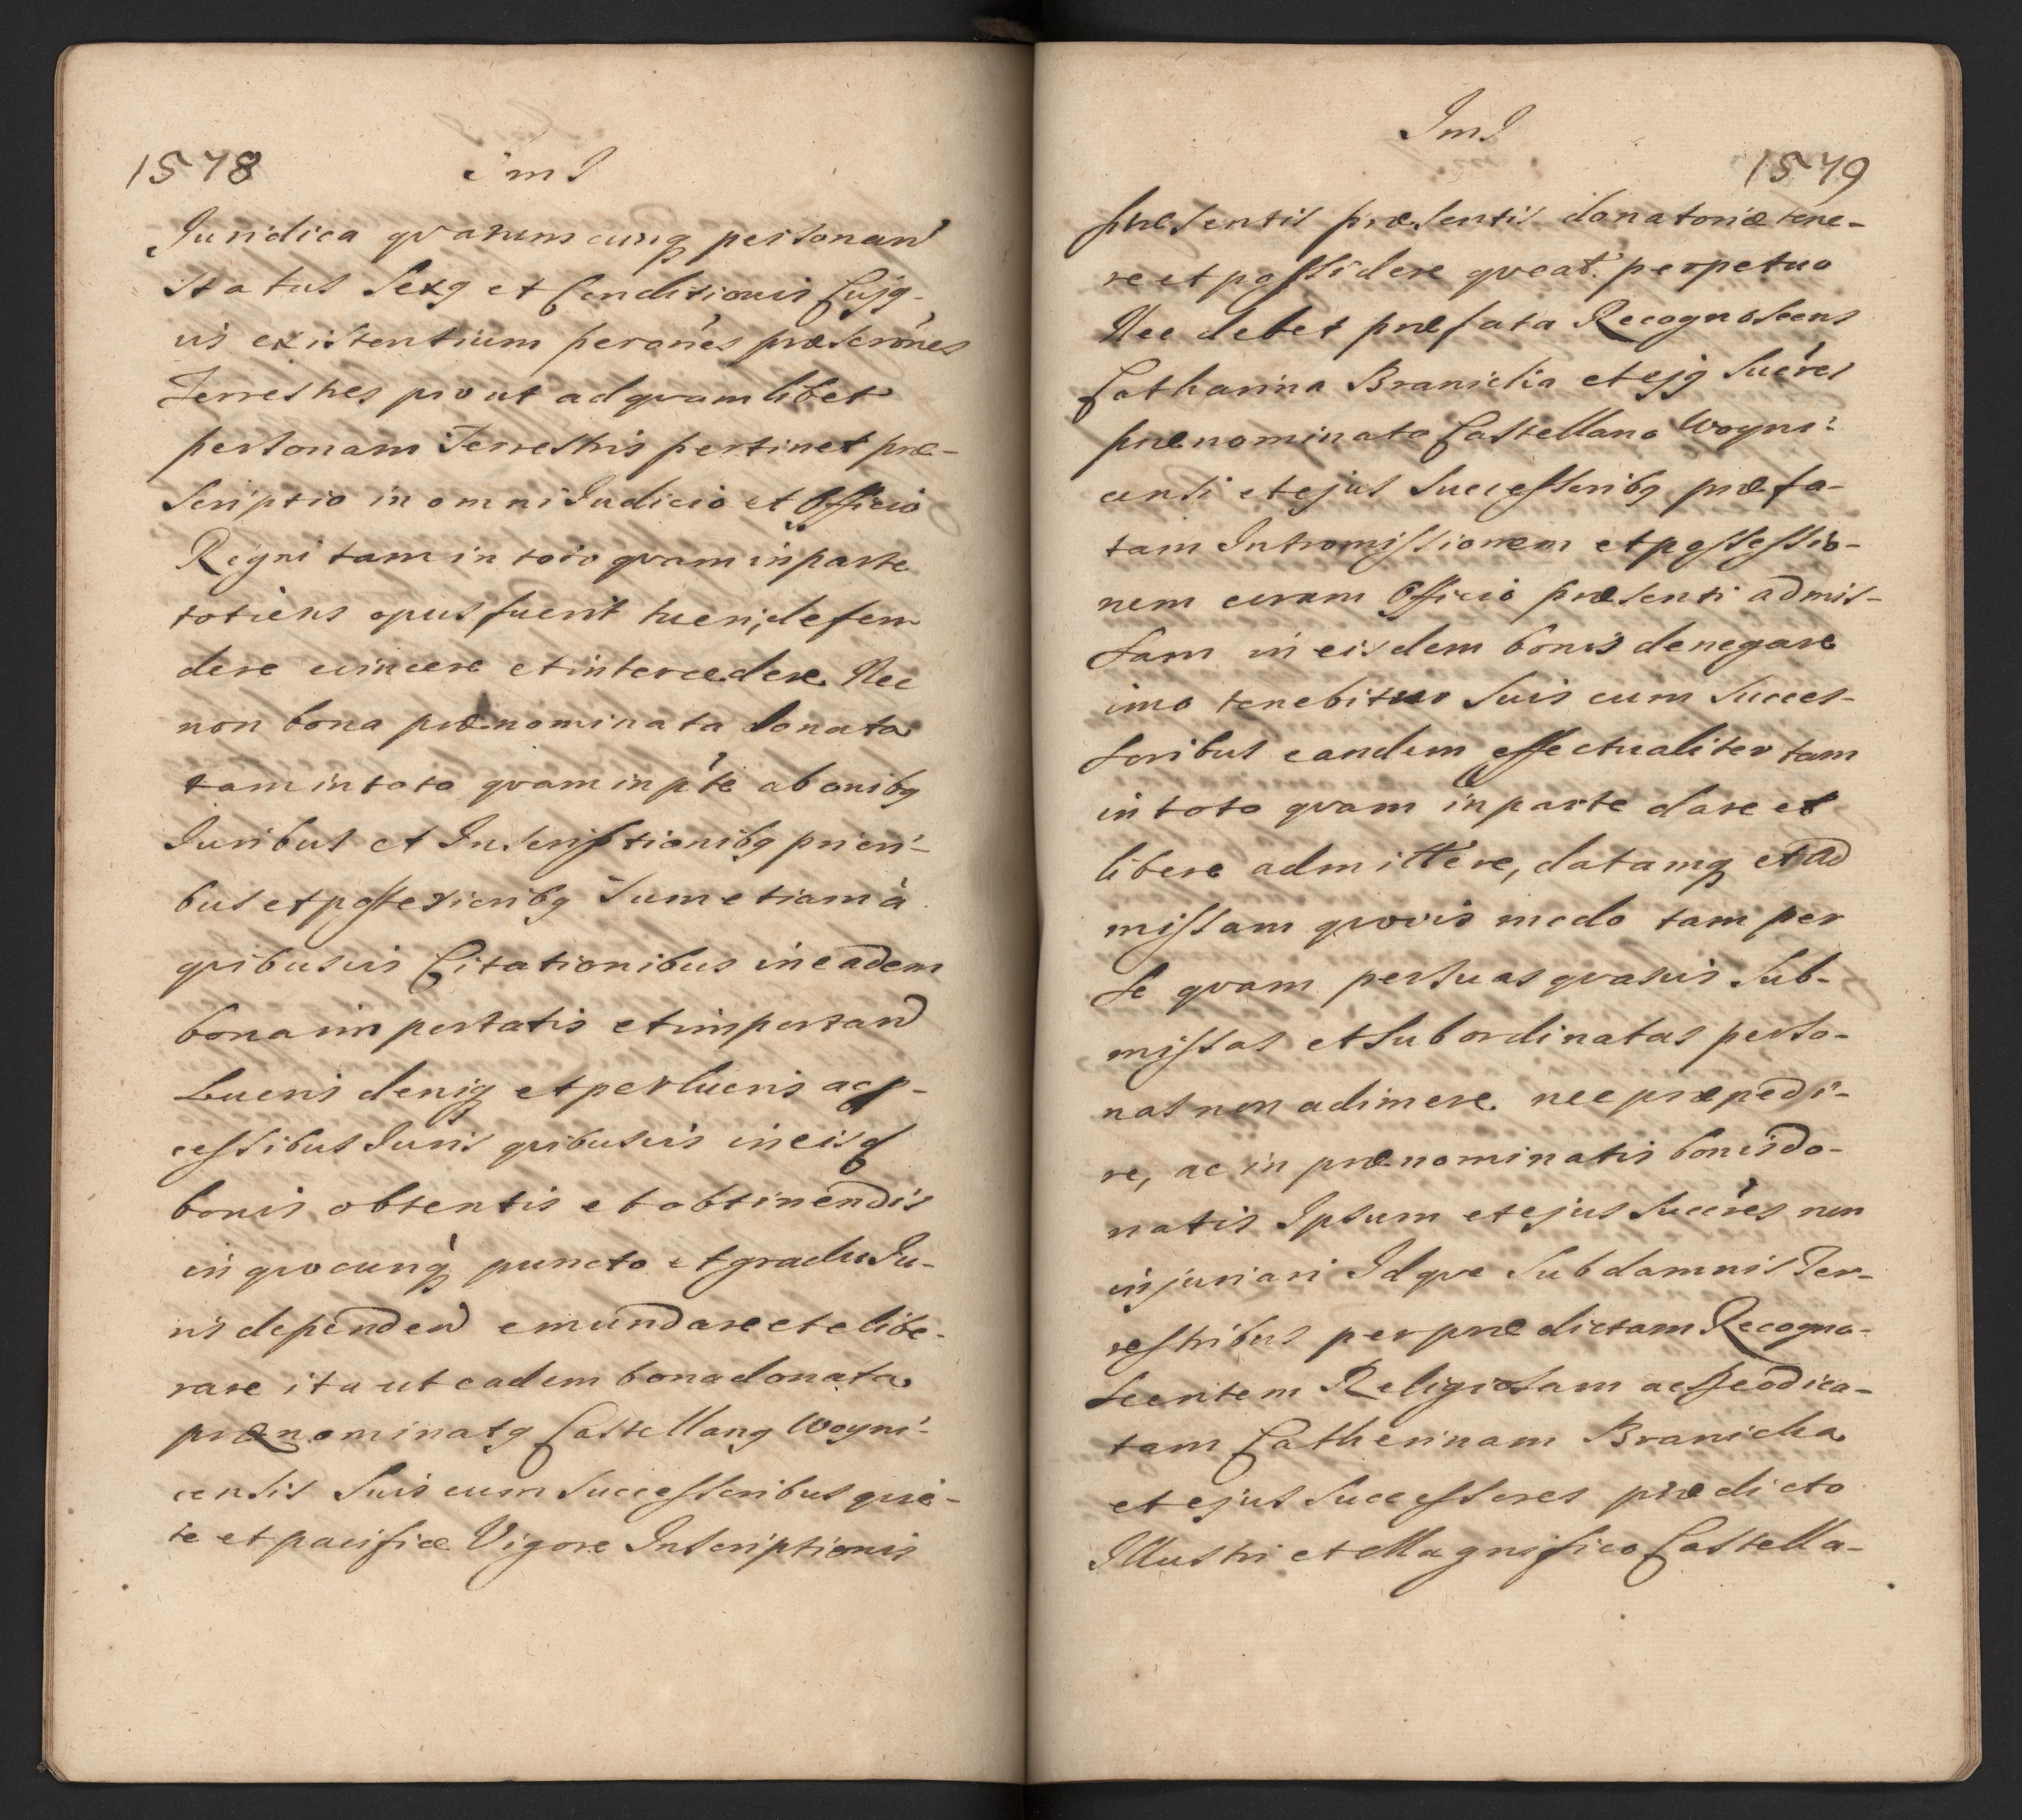 1578
ImI
Juridica qvarumcunq personaru
status Sexq et Conditionis Cujq-
vis existentium per ones præscrones
Terrestres prout ad qvamlibet
personam Terrestris pertinet præ-
scriptio in omni Judicio et Officio
Regni tam in toto qvam in parte
totiens opus fuerit tueri, defen
dere evincere et intercedere. Nec
non bona prænominata donata
tam in toto qvam in pte ab onibq
Juribus et Inscriptionibq priori-
bus et posterioribq Tum etiam à
qvibusvis Citationibus in eadem
bona importatis et importand
Lucris deniq et perlucris acp-
cessibus Juris qvibusvis in eisd
bonis obtentis et obtinendis
in qvocunq puncto et gradu Ju-
ris dependen emundare et elibe-
rare ita ut eadem bona donata
prænominatq Castellanq Woyni-
censis Suis cum Successoribus qvie-
te et pacifice Vigore Inscriptionis
ImI
1579
præsentis præsentis donatoriæ tene-
re et possidere qveat perpetuo
Nec debet præfata Recognoscens
Catharina Branicka et ejq Sucres
prænominato Castellano Woyni-
censi et ejus Successoribq præfa-
tam Intromissionem et possessio-
nem coram Officio præsenti admis-
sam in eisdem bonis denegare
imo tenebitur Suis cum Succes-
soribus eandem effectualiter tam
in toto qvam in parte dare et
libere admittere, datamq et ad
missam qvovis modo tam per
se qvam per suas qvasvis Sub-
missas et Subordinatas perso-
nas non adimere nec præpedi-
re, ac in prænominatis bonis do-
natis Ipsum et ejus Succres non
injuriari Idqve Sub damnis Ter-
restribus per prædictam Recogno-
scentem Religiosam ac Deodica-
tam Catherinam Branicka
et ejus Successores prædicto
Illustri et Magnifico Castella-